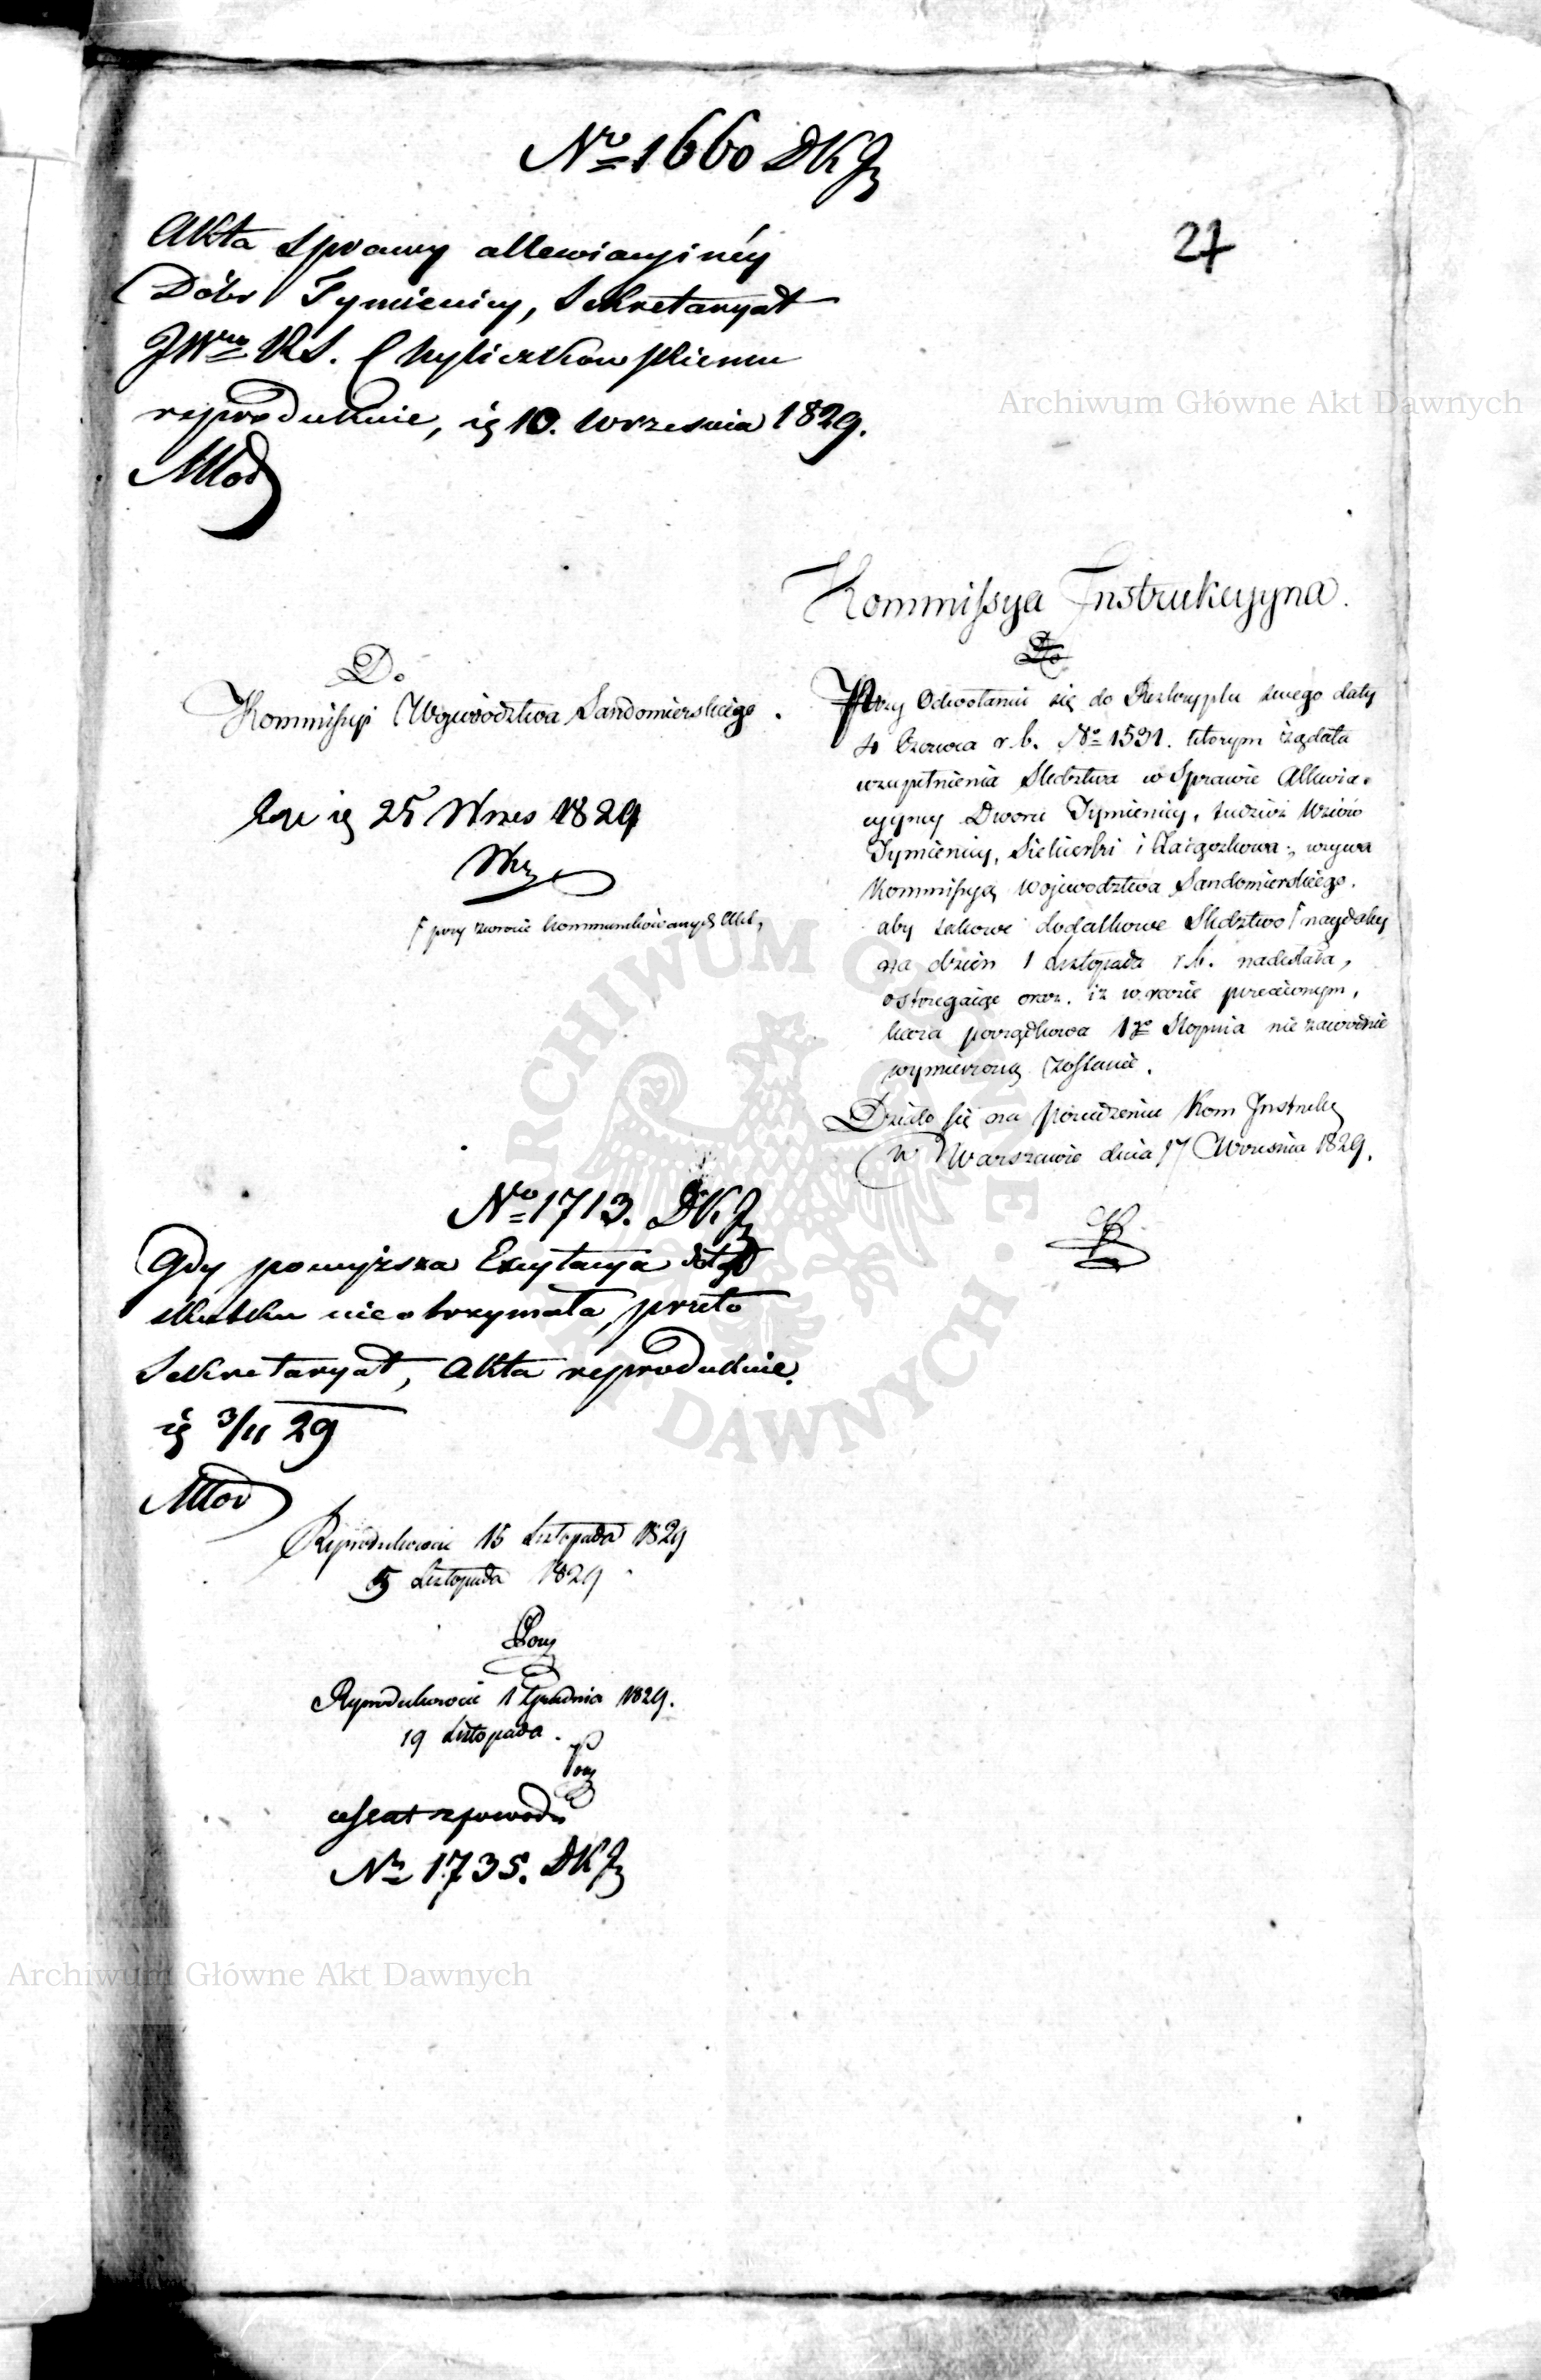 No 1660 DKJ
27
Akta Sprawy allewiacyinéy
Dóbr Tymienicy, Sekretaryat
JWmu RS. Chyliczkowskiemu
reprodukuie, ig 10. Września 1829.
Młod
Archiwum Główne Akt Dawnych
Kommissya Instrukcyyna.
Do
Do
Kommissyi Województwa Sandomierskiego.
Przy Odwołaniu się do Reskryptu swego daty
Czerwca r. b. No 1531. którym żądała
uzupełnienia Śledztwa w Sprawie Allewia-
cyyney Dworu Tymienicy, tudzież Wsiów
Tymienicy, wzywa
Kommissyą Województwa Sandomierskiego.
aby takowe dodatkowe Śledztwo Γ naydaley
na dzień 1 Listopada r. b. nadesłała,
ostrzegaiąc oraz. iż w razie przeciwnym,
kara porządkowa 1go Stopnia nie zawodnie
wymierzoną zostanie.
Działo się na posiedzeniu Kom Instrukcy
w Warszawie dnia 17 Września 1829.
ig 25 Wrzes 1829
Γ przy zwrocie kommunikowanych Akt,
No 1713. DKJ
Gdy powyższa Excytacya dotąd
skutku nieotrzymała, przeto
Sekretaryat, Akta reprodukuie.
ig 3/11 29
Młod
Reprodukowac 15 Listopada 1829
5 Listopada 1829
Reprodukowac 1 Grudnia 1829.
19 Listopada.
cessat z powodu
Nr 1735. DKJ
Archiwum Główne Akt Dawnych
ARCHIWUM GŁÓWNE AKT DAWNYCH